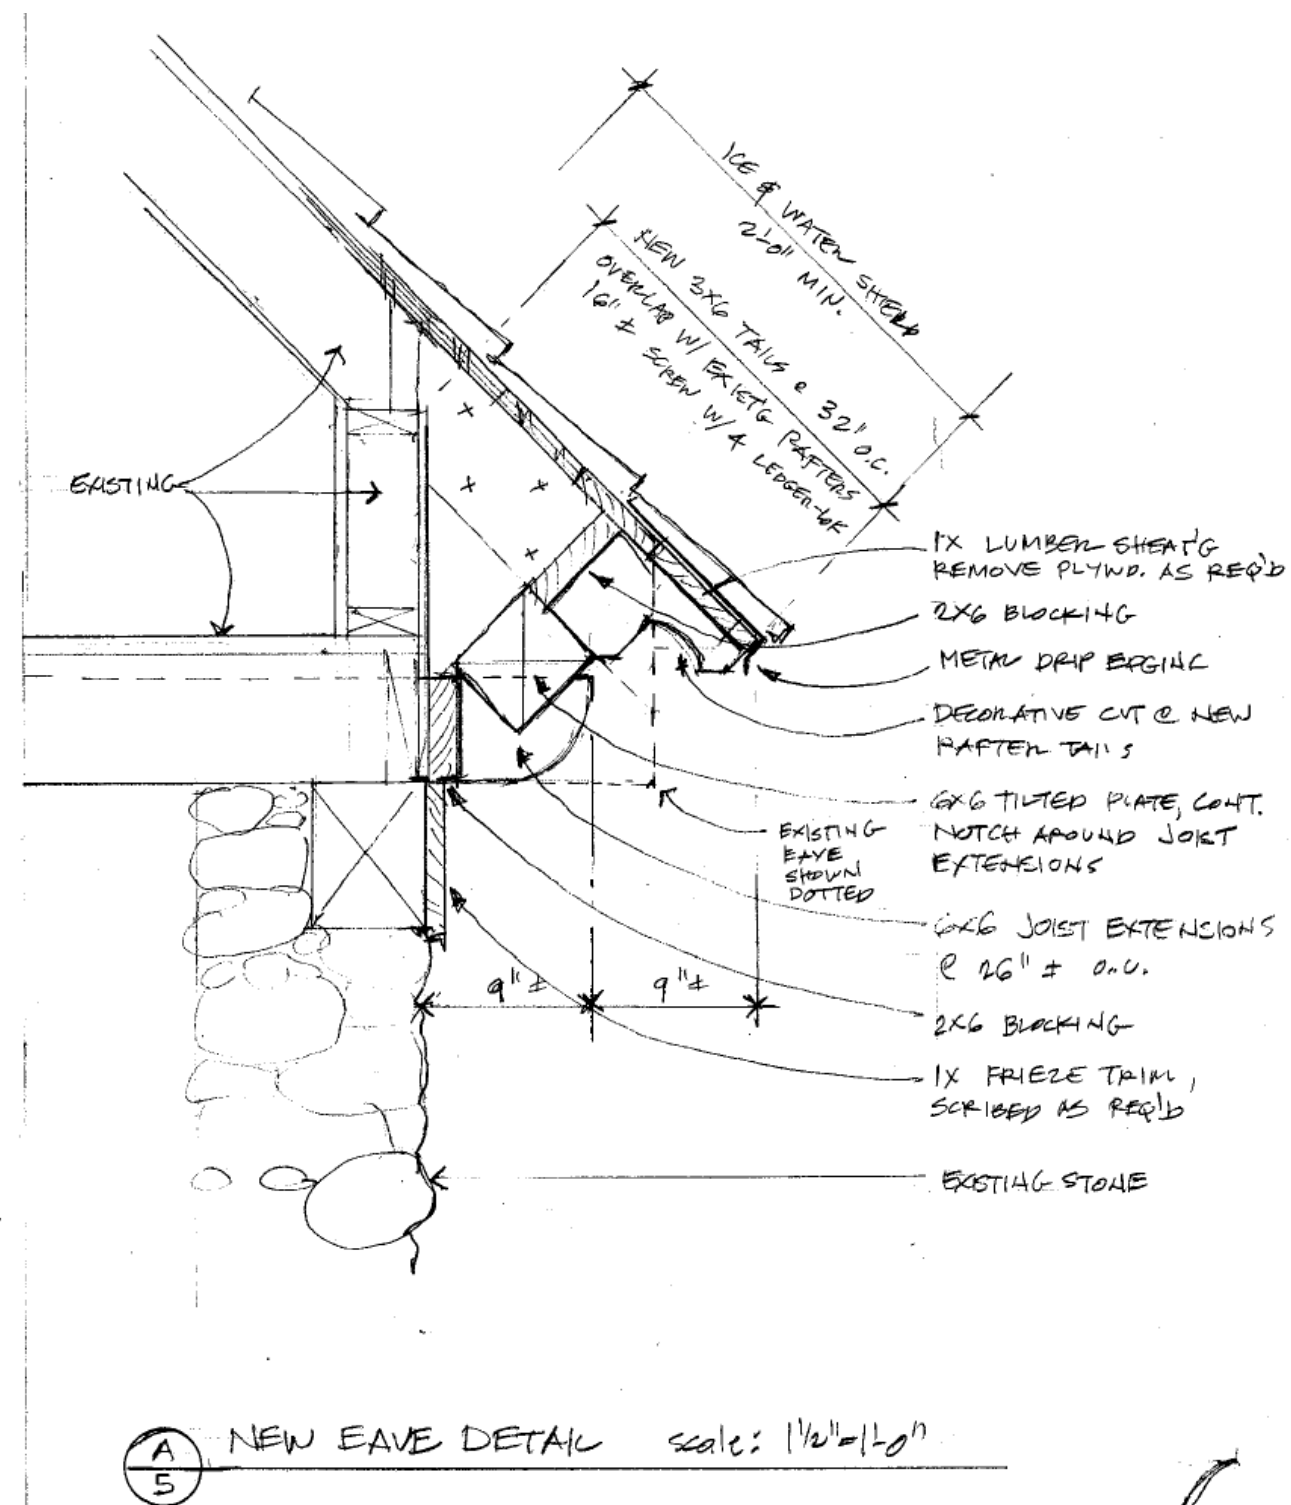 ICE & WATER SHIELD
2'-0" MIN.
NEW 3X6 TAILS @ 32" O.C.
OVERLAP W/ EXIST'G RAFTERS
16" ± SCREW W/ 4 LEDGER-LOK
EXISTING
1X LUMBER SHEAT'G
REMOVE PLYWD. AS REQ'D
2X6 BLOCKING
METAL DRIP EDGING
DECORATIVE CUT @ NEW
RAFTER TAILS
6X6 TILTED PLATE, CONT.
NOTCH AROUND JOIST
EXTENSIONS
EXISTING
EAVE
SHOWN
DOTTED
6X6 JOIST EXTENSIONS
@ 26" ± O.C.
9" ±
9" ±
2X6 BLOCKING
1X FRIEZE TRIM,
SCRIBED AS REQ'D
EXISTING STONE
A
5
NEW EAVE DETAIL scale: 1 1/2"=1'-0"